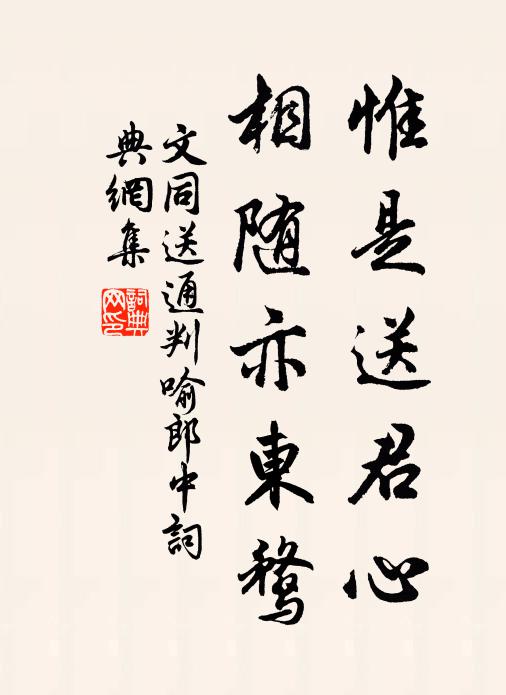 惟是送君心
相随亦東鶩
文同送通判喻郎中詞
典網集
詞典
网印